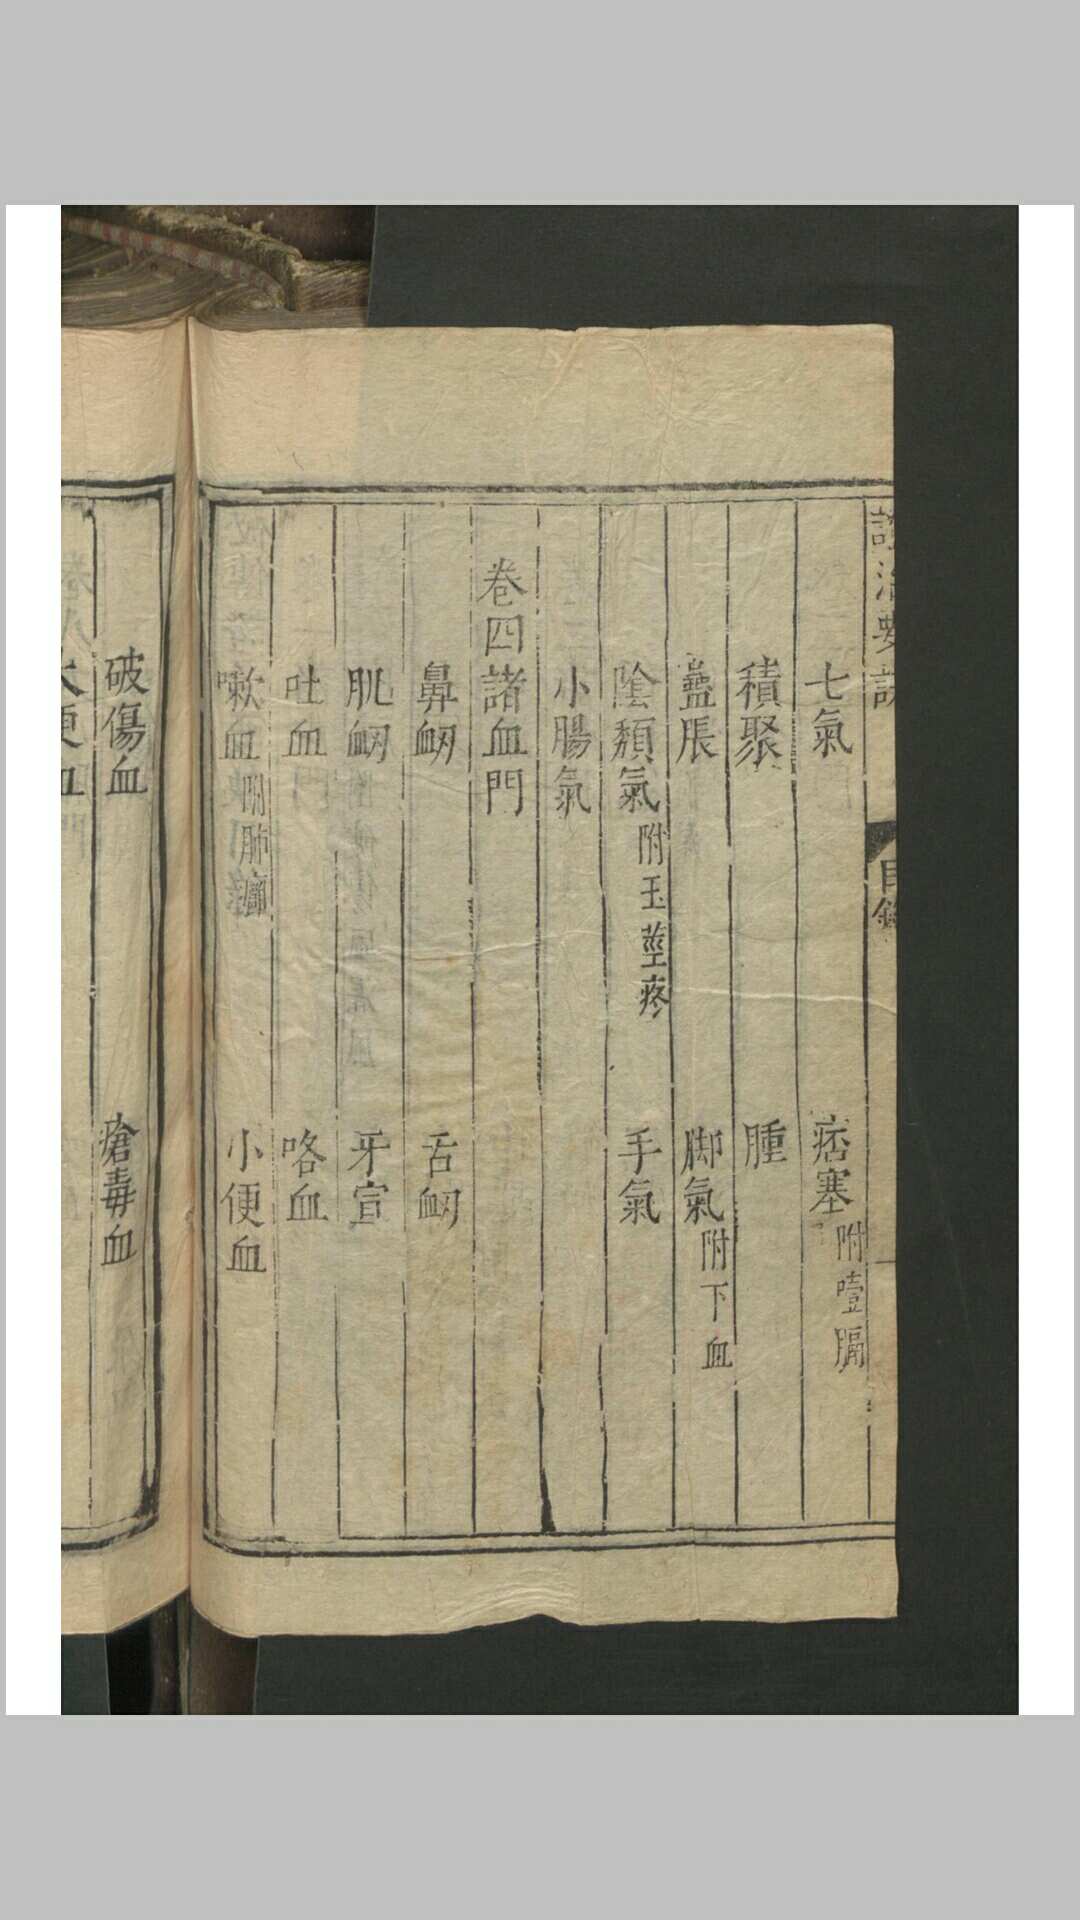 證治要訣
目錄
七氣 痞塞附噎膈
積聚 腫
蠱脹 脚氣附下血
陰㿗氣附玉莖疼 手氣
小腸氣
卷四諸血門
鼻衂 舌衂
肌衂 牙宣
吐血 咯血
嗽血附肺癰 小便血
破傷血 瘡毒血
大便血